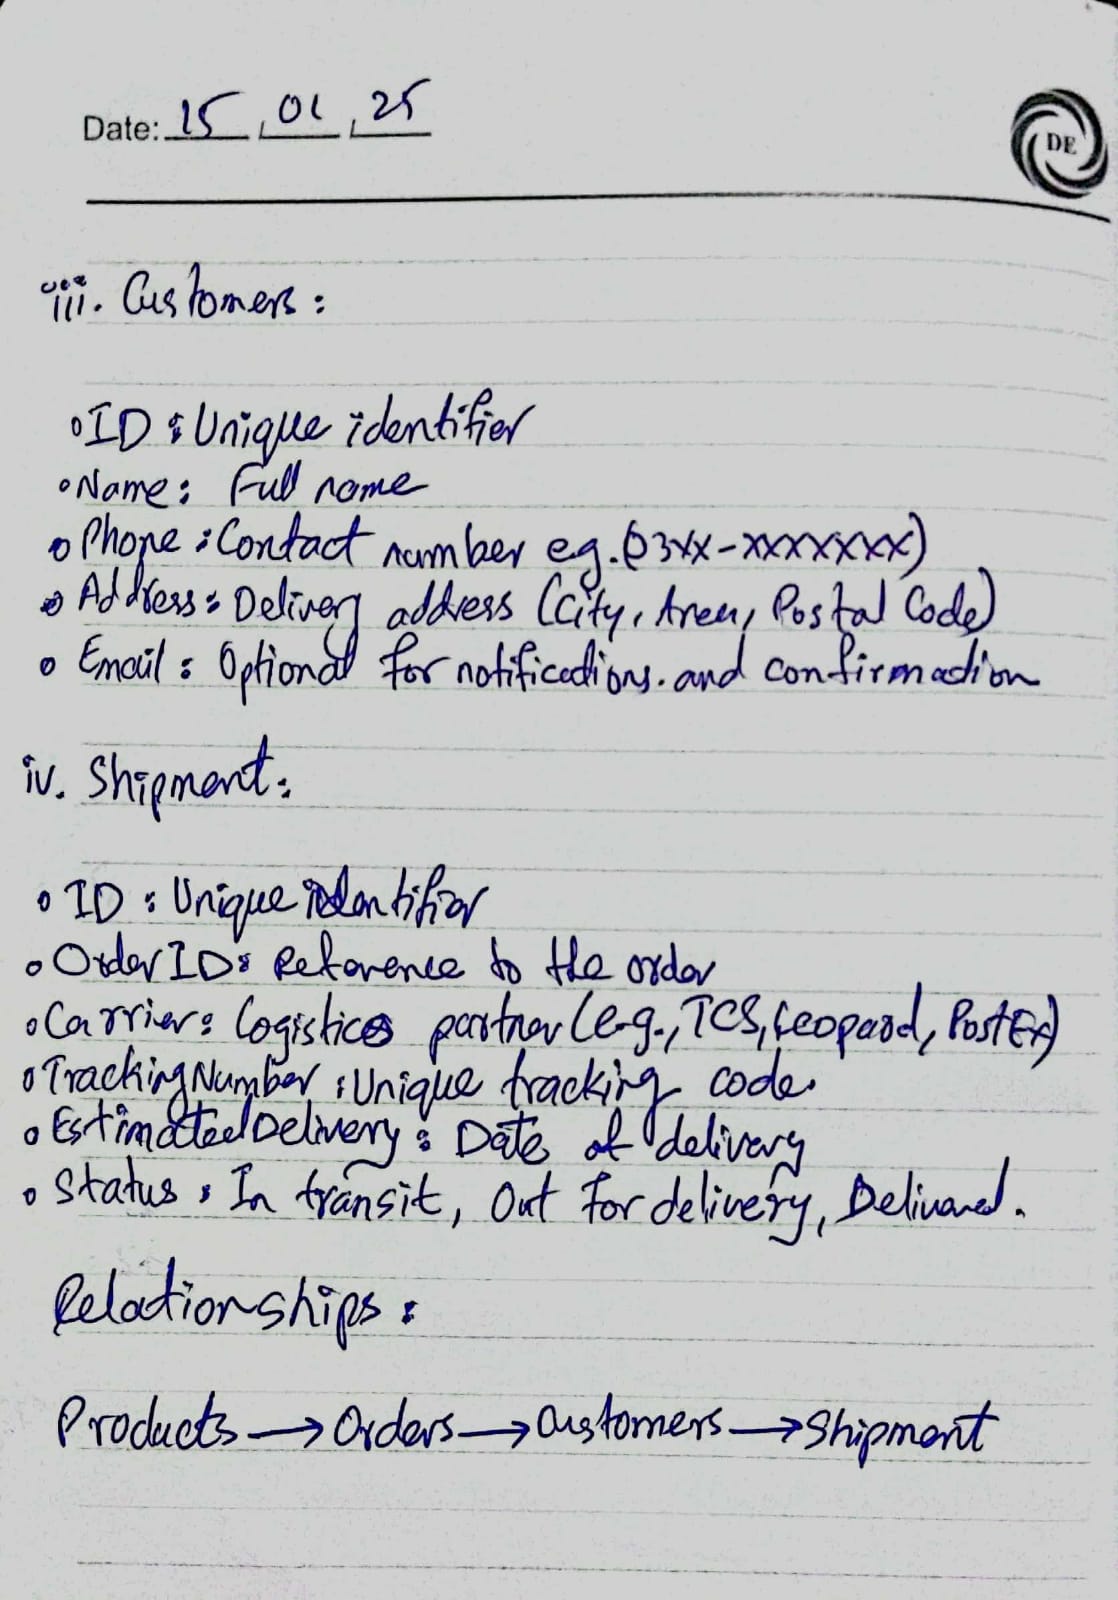 Date: 15, 01, 25
DE
iii. Customers:
• ID: Unique identifier
• Name: Full name
• Phone: Contact number eg. (03xx-xxxxxxx)
• Address: Delivery address (City, Area, Postal Code)
• Email: Optional for notifications. and confirmation
iv. Shipment:
• ID: Unique identifier
• OrderID: Reference to the order
• Carrier: Logistics partner (e.g., TCS, Leopard, PostEx)
• TrackingNumber: Unique tracking code.
• EstimatedDelivery: Date of delivery
• Status: In transit, Out for delivery, Delivered.
Relationships:
Products → Orders → Customers → Shipment